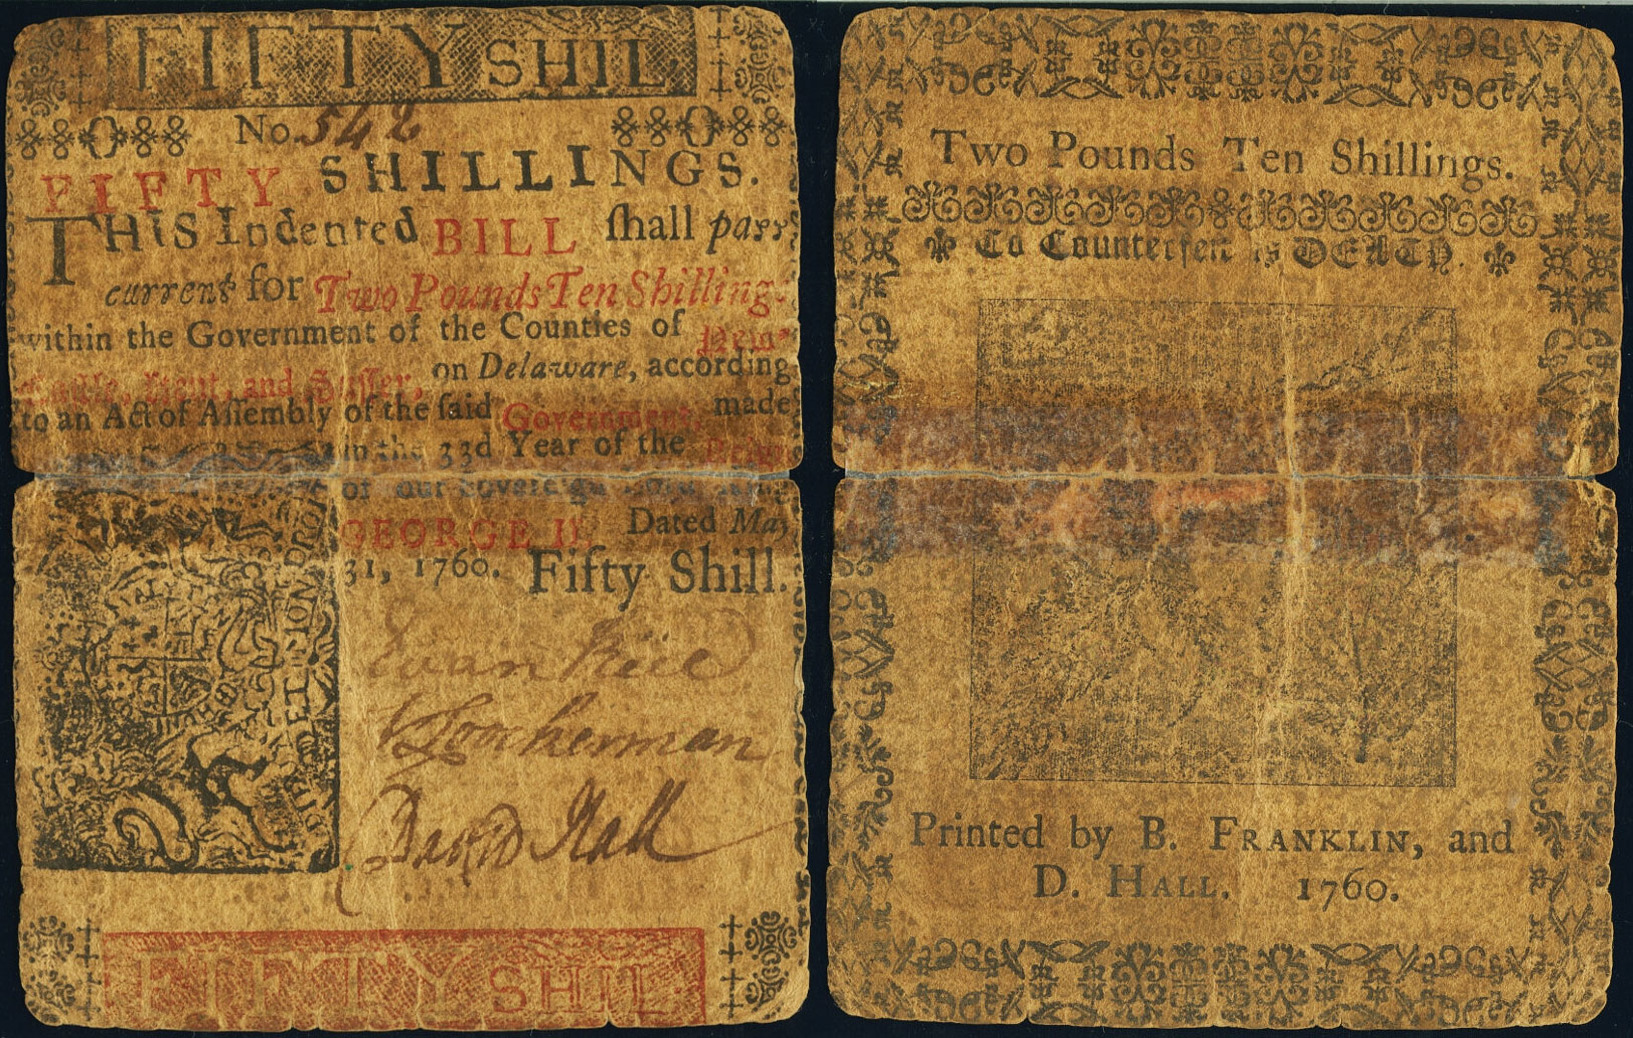 FIFTY SHIL
No. 542
FIFTY SHILLINGS.
THIS Indented BILL ſhall paſs
current for Two Pounds Ten Shillings
within the Government of the Counties of
on Delaware, according
to an Act of Aſſembly of the ſaid Government, made
in the 33d Year of the
of our Sovereign Lord
GEORGE II. Dated May
31, 1760. Fifty Shill.
DIEU ET MON DROIT
Evan Rice
Loockerman
David Hall
FIFTY SHIL
Two Pounds Ten Shillings.
To Counterfeit is DEATH.
Printed by B. FRANKLIN, and
D. HALL. 1760.